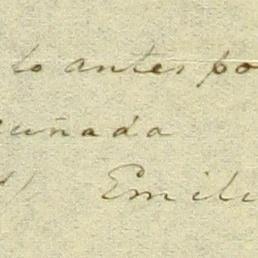 lo antes po
cuñada
Emili